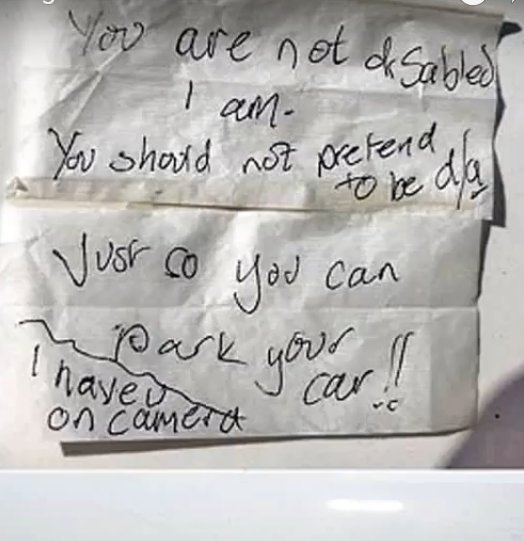 You are not disabled
I am.
You should not pretend
to be d/a
Just so you can
park your
car!!
I have u
on camera